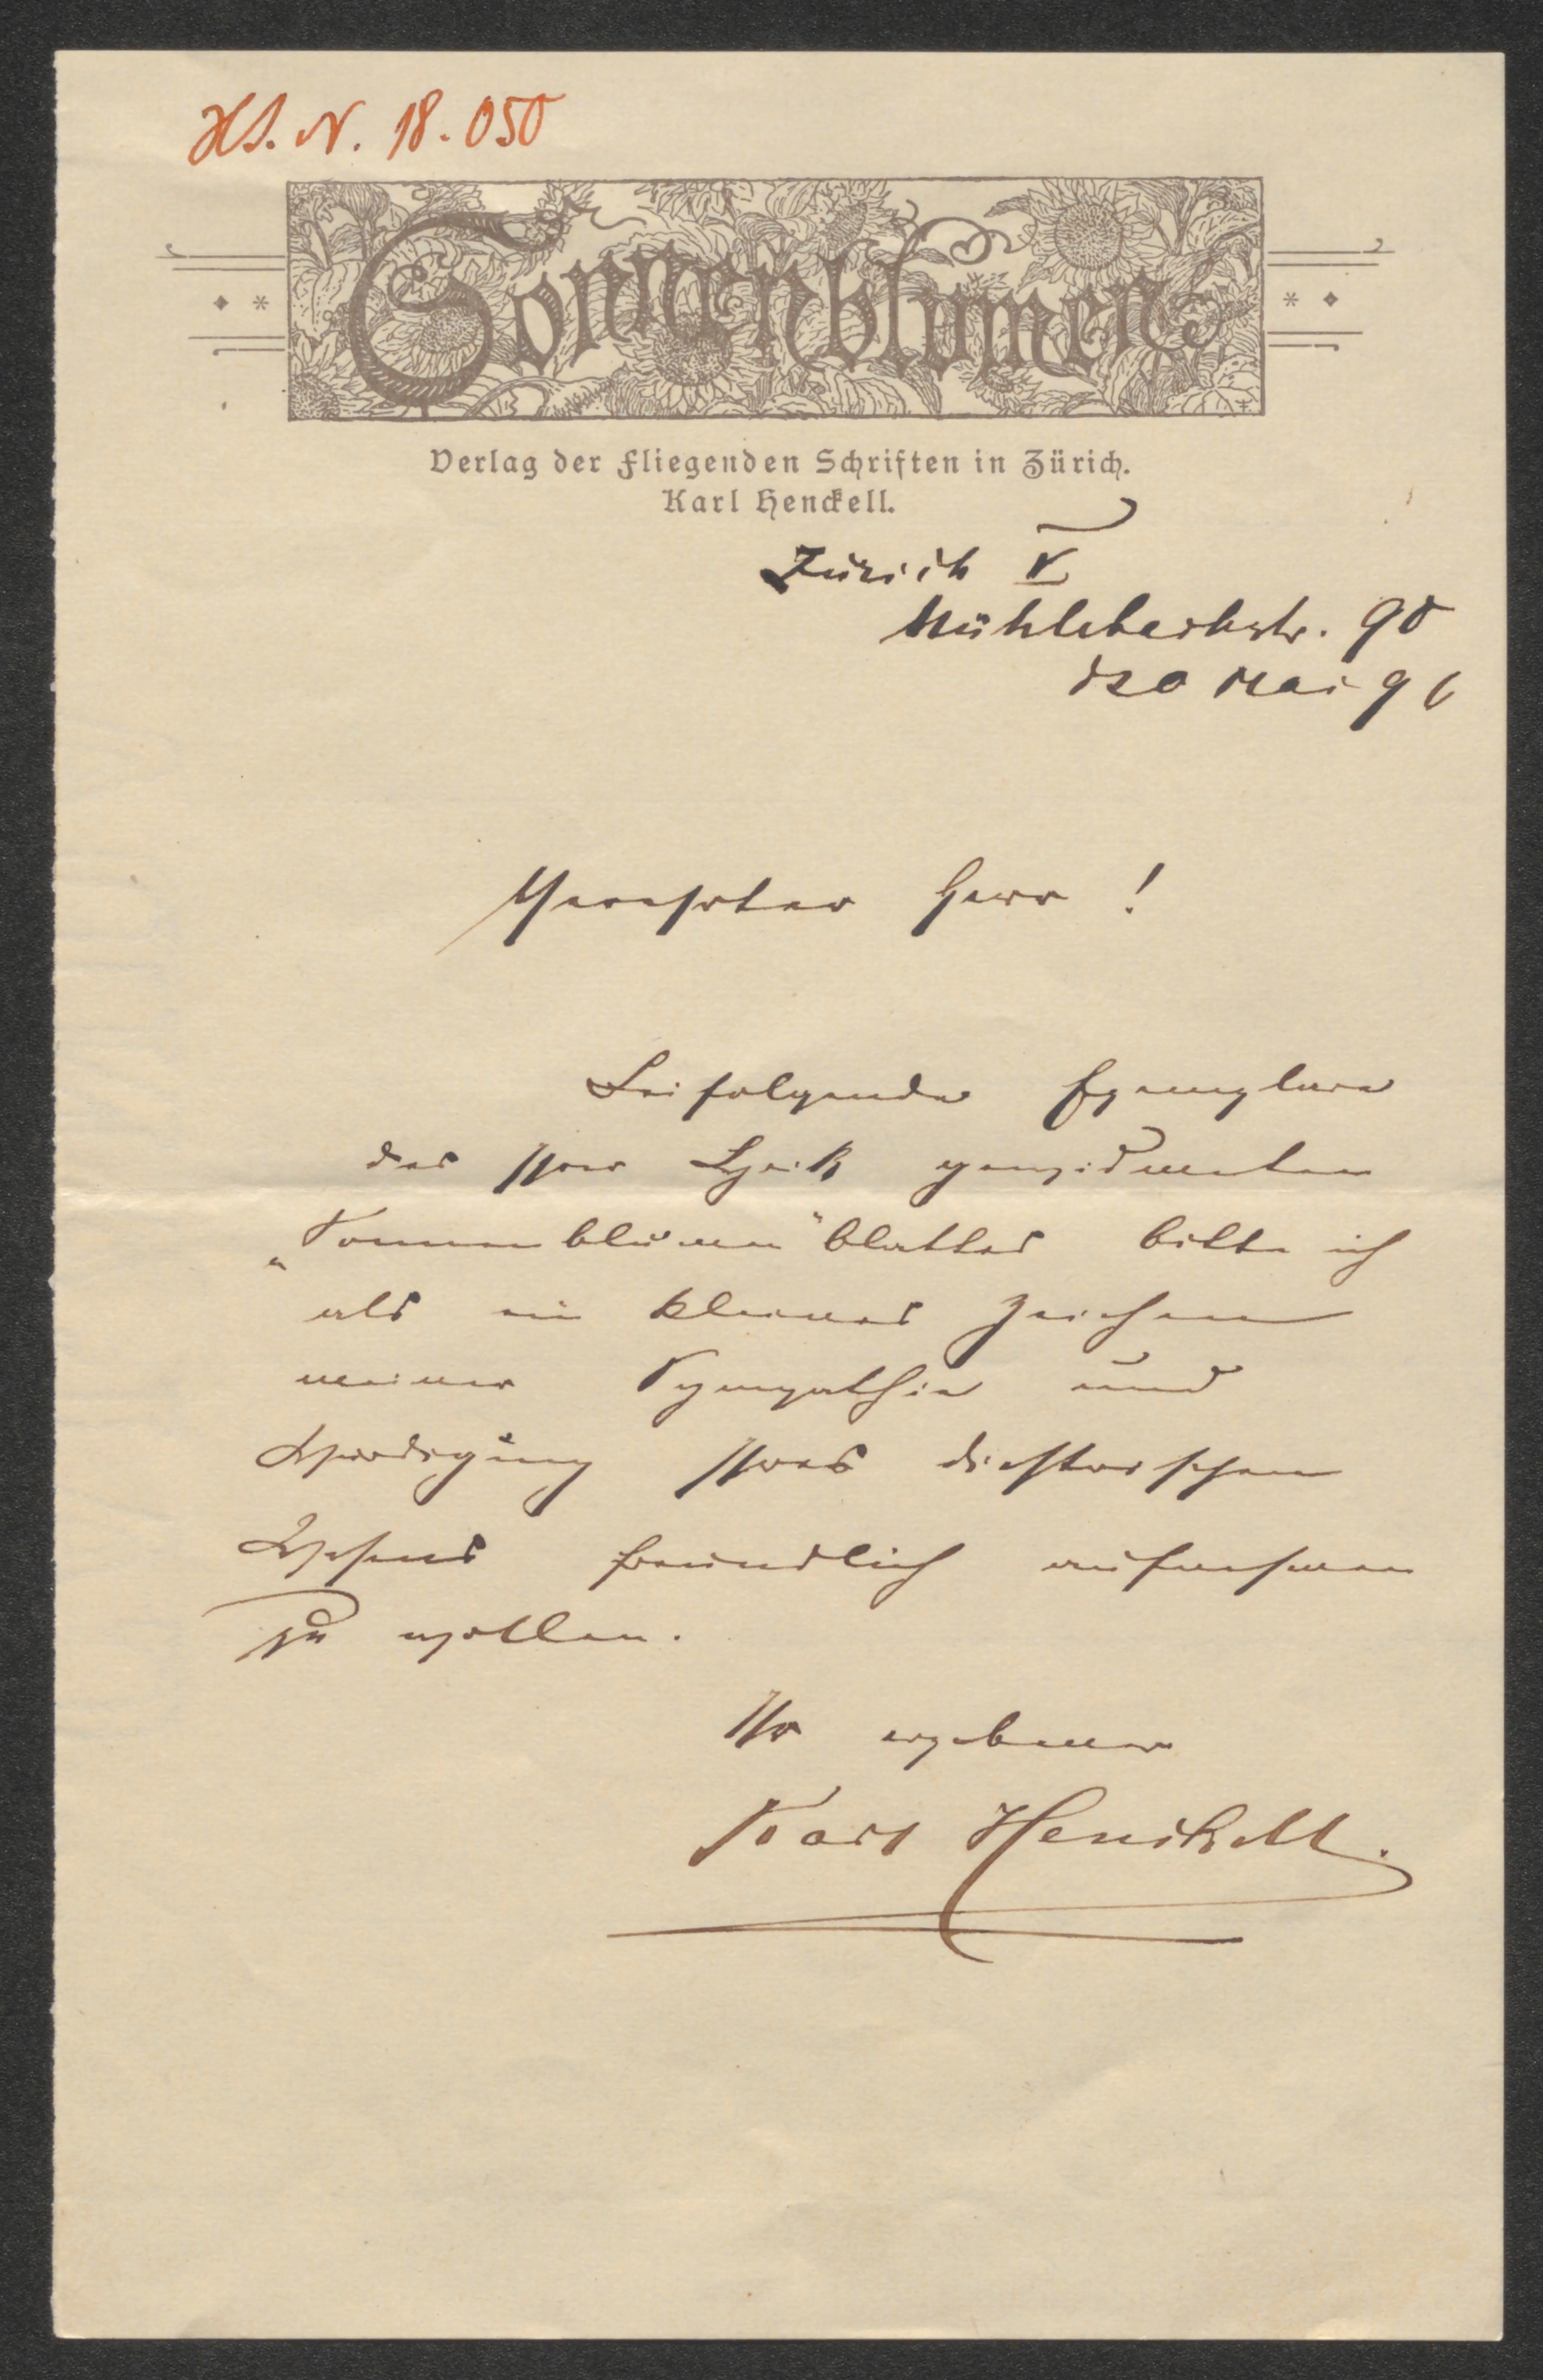 HS. N. 18.050
Sonnenblumen
Verlag der Fliegenden Schriften in Zürich.
Karl Henckell.
Zürich V
Mühlebachstr. 90
d 20 Mai 96
Verehrter Herr!
Beifolgende Exemplare
des Ihrer Lyrik gewidmeten
„Sonnenblumen"blattes bitte ich
als ein kleines Zeichen
meiner Sympathie und
Würdigung Ihres dichterischen
Wesens freundlich aufnehmen
zu wollen.
Ihr ergebener
Karl Henckell.